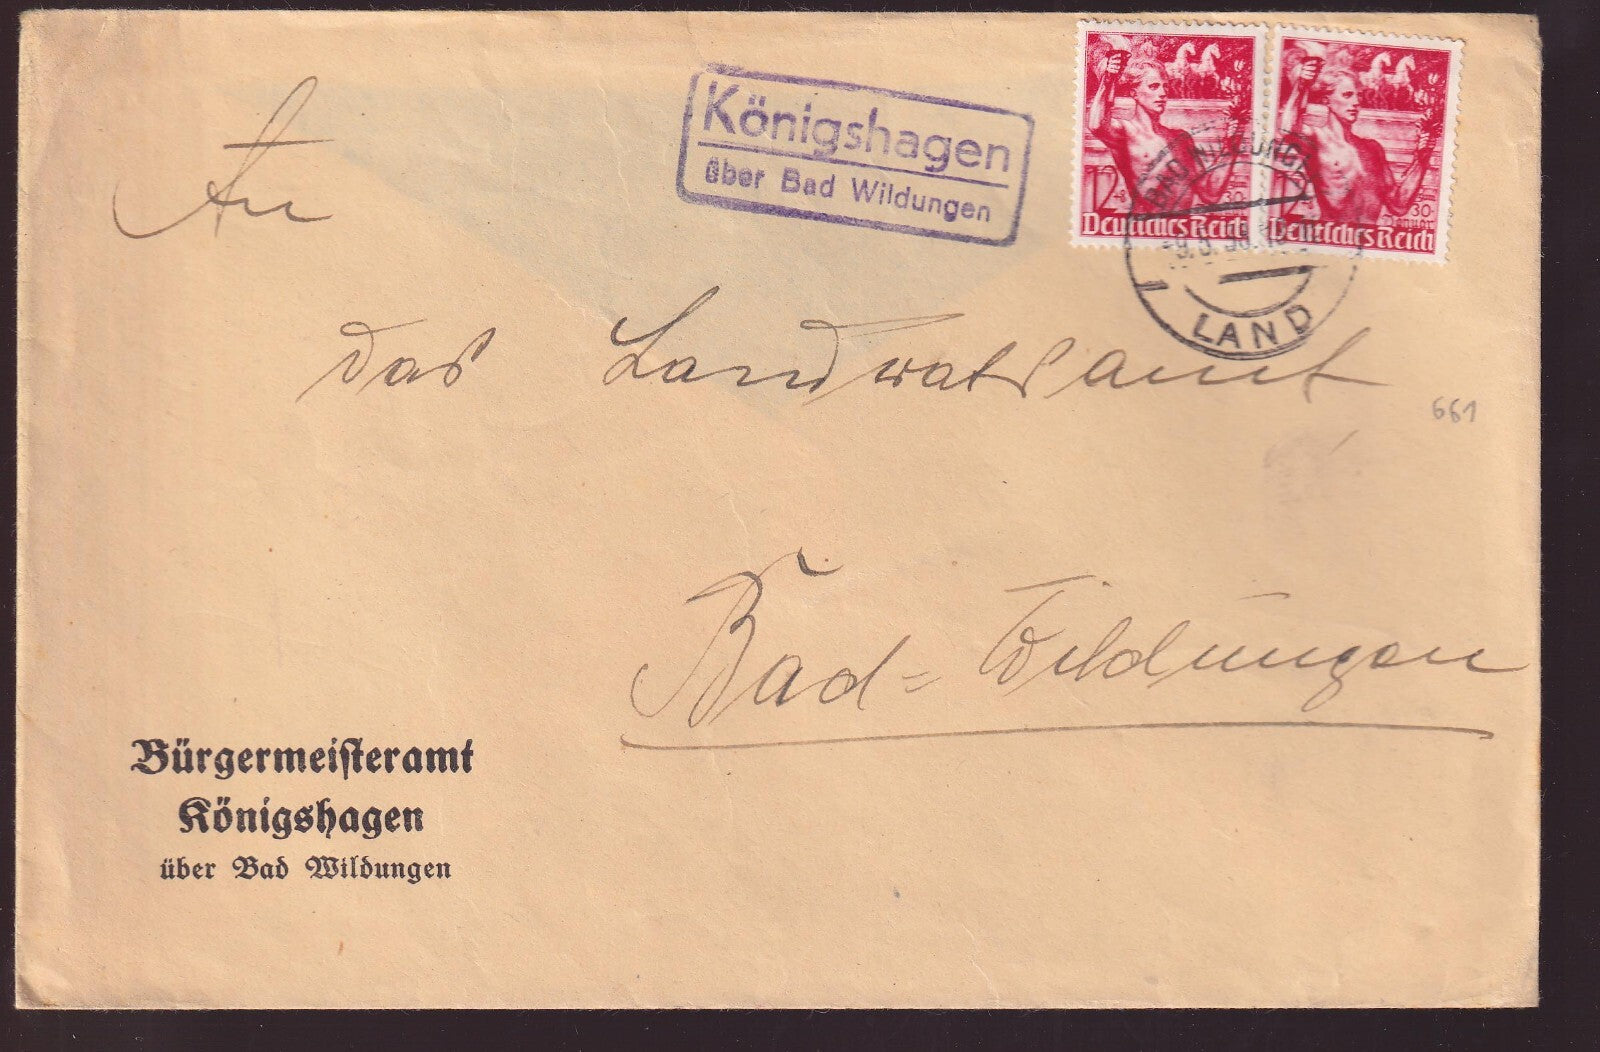 Königshagen
über Bad Wildungen
12+8
30.
Deutsches Reich
12+8
30.
Deutsches Reich
BAD WILDUNGEN
LAND
An
das Landratsamt
661
Bad=Wildungen
Bürgermeisteramt
Königshagen
über Bad Wildungen